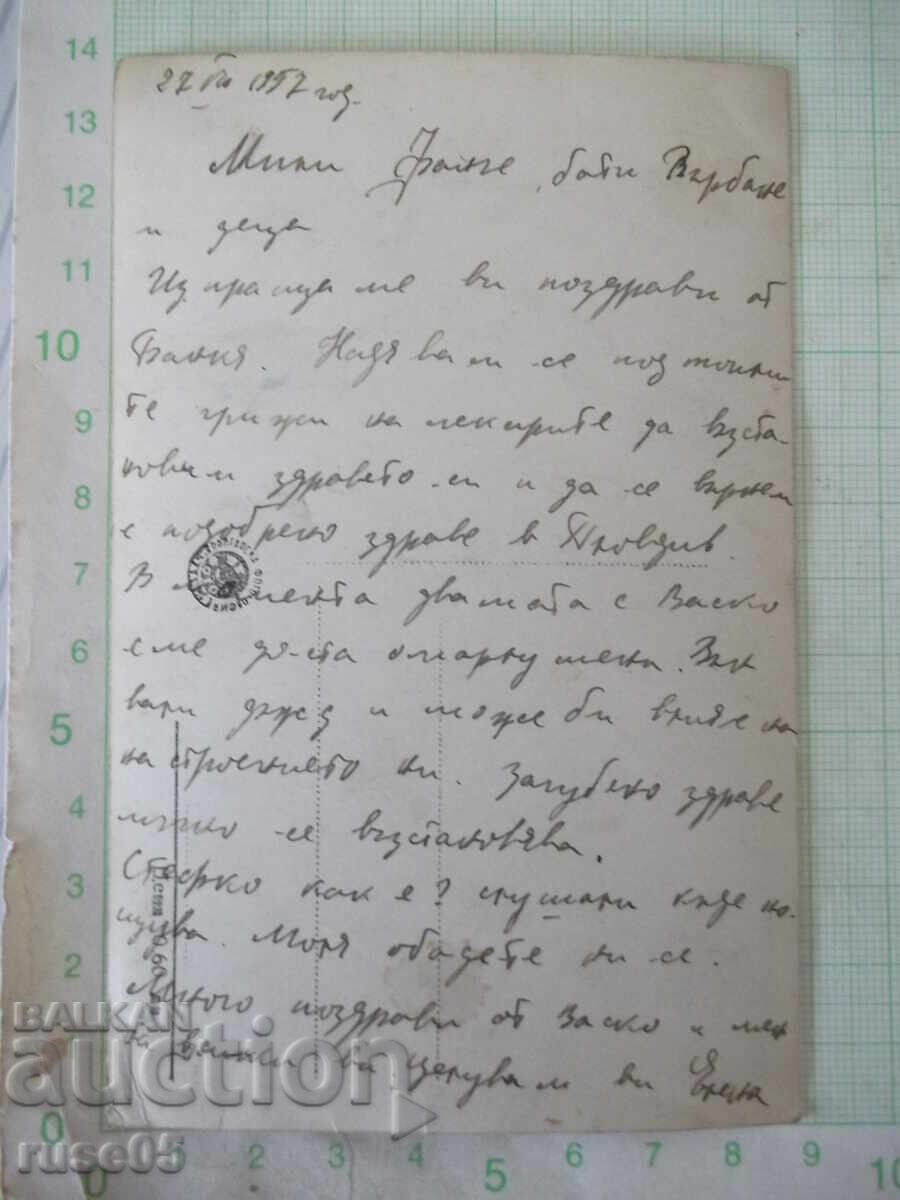 27 VII 1957 год.
Мили Фанче, бати Върбане
и деца
Изпращаме ви поздрави от
Банкя. Надявам се под топли
те грижи на лекарите да възста-
новим здравето си и да се върнем
с подобрено здраве в Пловдив.
В момента двамата с Васко
сме доста омърлушени. Зах
вали дъжд и може би влияе на
настроението ни. Загубено здраве
мъчно се възстановява.
Стефко как е? слуша ли къде но-
щува. Моля обадете ни се.
Много поздрави от Васко и мен
на всички ви целувам ви Елена
Цена 0,60
BALKAN
auction
ruse05
14
13
12
11
10
9
8
7
6
5
4
3
2
1
0
0
1
2
3
4
5
6
7
8
9
10